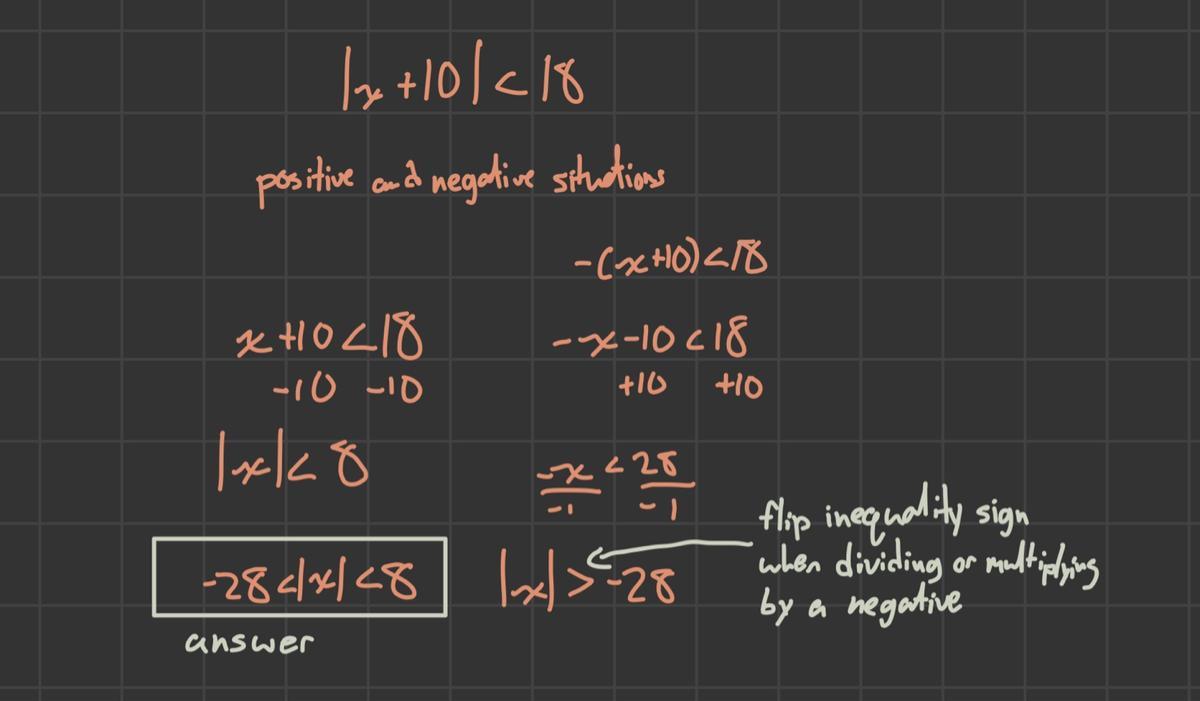 |x+10|<18
positive and negative situations
-(x+10)<18
x+10<18
-10 -10
|x|<8
-x-10<18
+10 +10
-x < 28
-1 -1
|x|>-28
flip inequality sign
when dividing or multiplying
by a negative
-28<|x|<8
answer